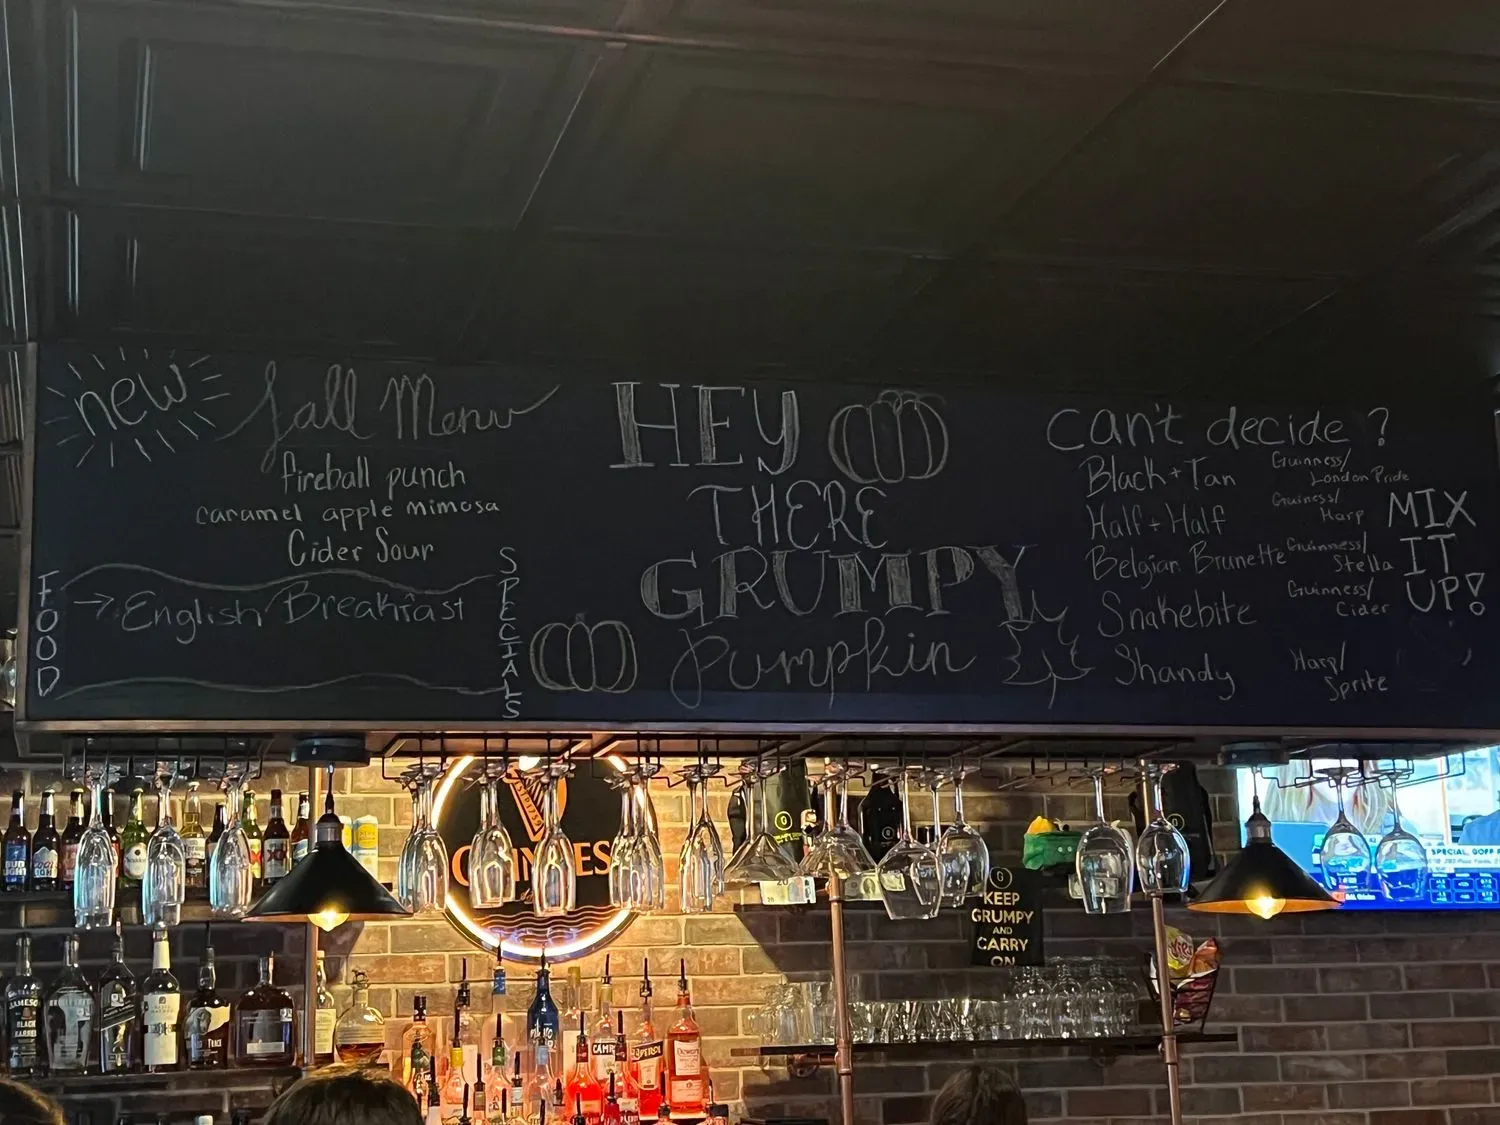 new
Fall Menu
fireball punch
caramel apple mimosa
Cider Sour
FOOD
→ English Breakfast
SPECIALS
HEY
THERE
GRUMPY
pumpkin
Can't decide?
Black + Tan Guinness/
London Pride
Half + Half Guiness/
Harp
Belgian Brunette Guinness/
Stella
Snakebite Guinness/
Cider
Shandy Harp/
Sprite
MIX
IT
UP!
GUINNESS
KEEP
GRUMPY
AND
CARRY
ON
SPECIAL GOFF
JAMESON
BLACK
BARREL
BUD
LIGHT
TRACE
CAMP
Dewar's